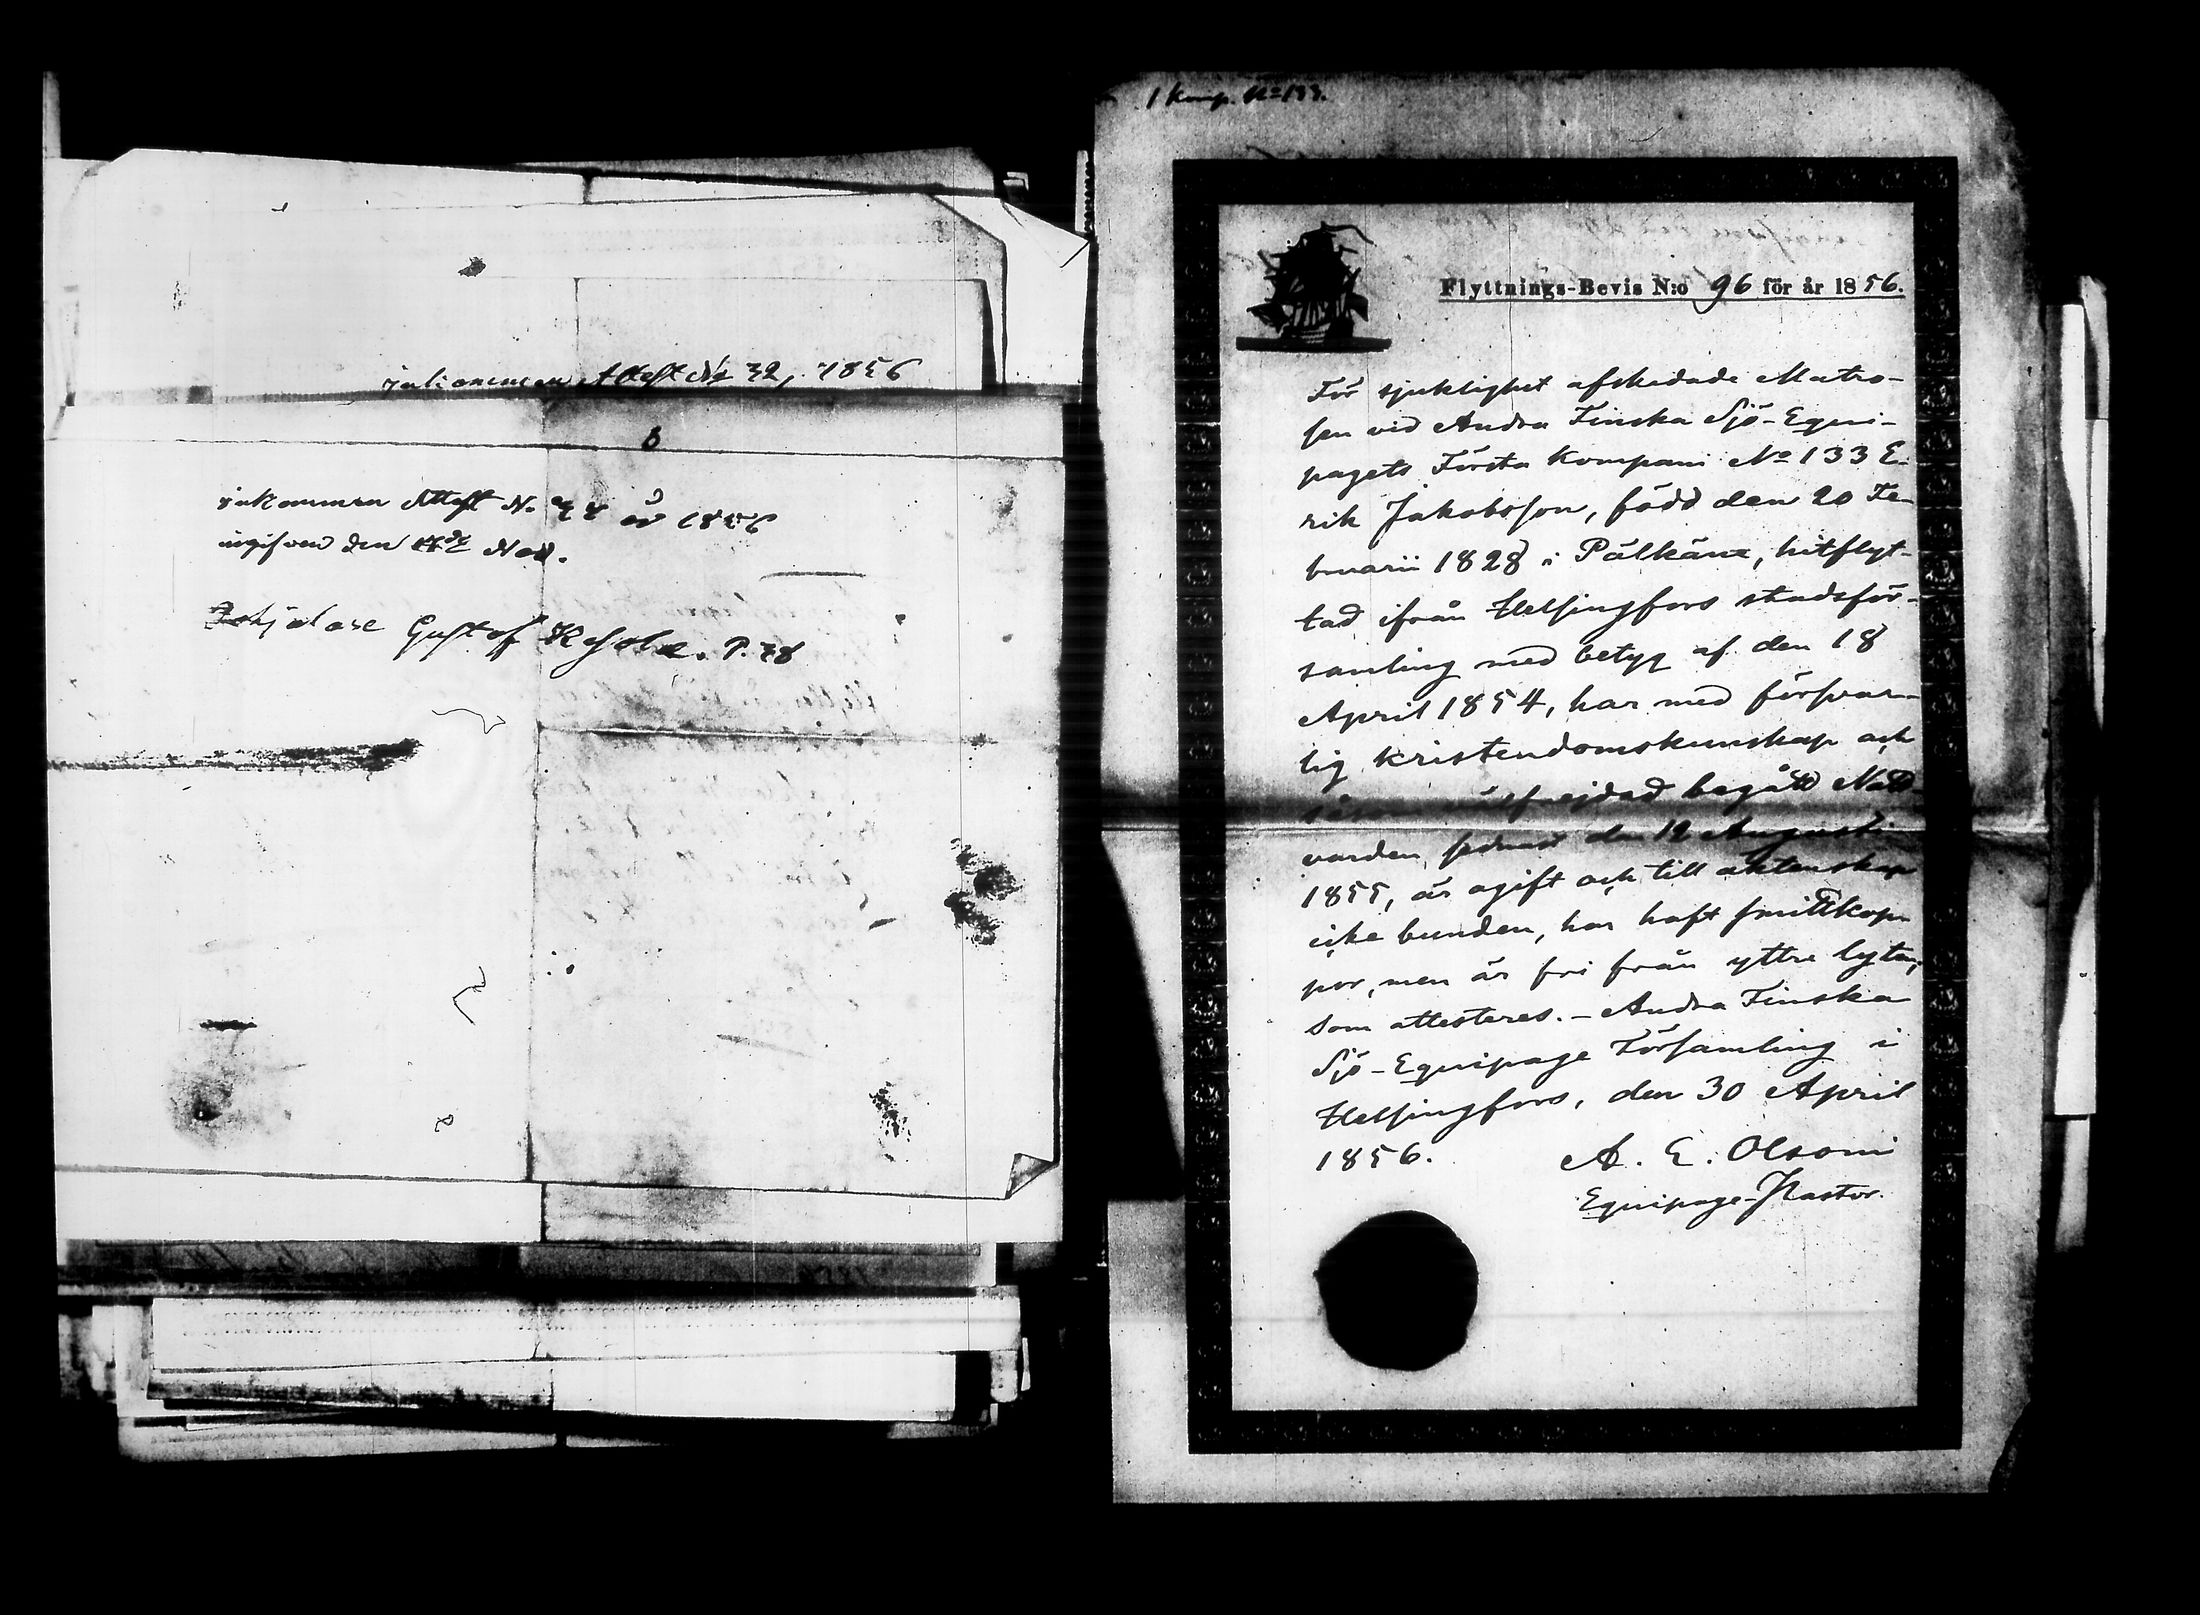 inkommen Attest No 32, 1856
inkommen Attest No år 1856
ingifven den Nov.
Gustof P. 78
1 Komp. No 133.
Flyttnings-Bevis N:o 96 för år 1856.
För sjuklighet afskedade Matro-
sen vid Andra Finska Sjö-Equi-
pagets Första Kompani No 133 E-
rik Jakobsson, född den 20 Fe-
bruarii 1828 i Pälkäne, hitflyt-
tad ifrån Helsingfors stadsför-
samling med betyg af den 18
April 1854, har med försvar-
lig kristendomskunskap och
såsom välfrejdad begått Natt-
varden sednast den 12 Augusti
1855, är ogift och till äktenskap
icke bunden, har haft smittkop-
por, men är fri från yttre lyten;
som attesteres. - Andra Finska
Sjö-Equipage Församling i
Helsingfors, den 30 April
1856.
A. E. Olsoni
Equipage-Pastor.